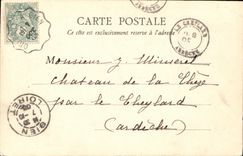 CARTE POSTALE
Ce côté est exclusivement réservé à l'adresse
LE CHEYLARD
ARDÈCHE
Monsieur J.
Chateau de la
par le Cheylard
(ardèche)
GIEN
LOIRET